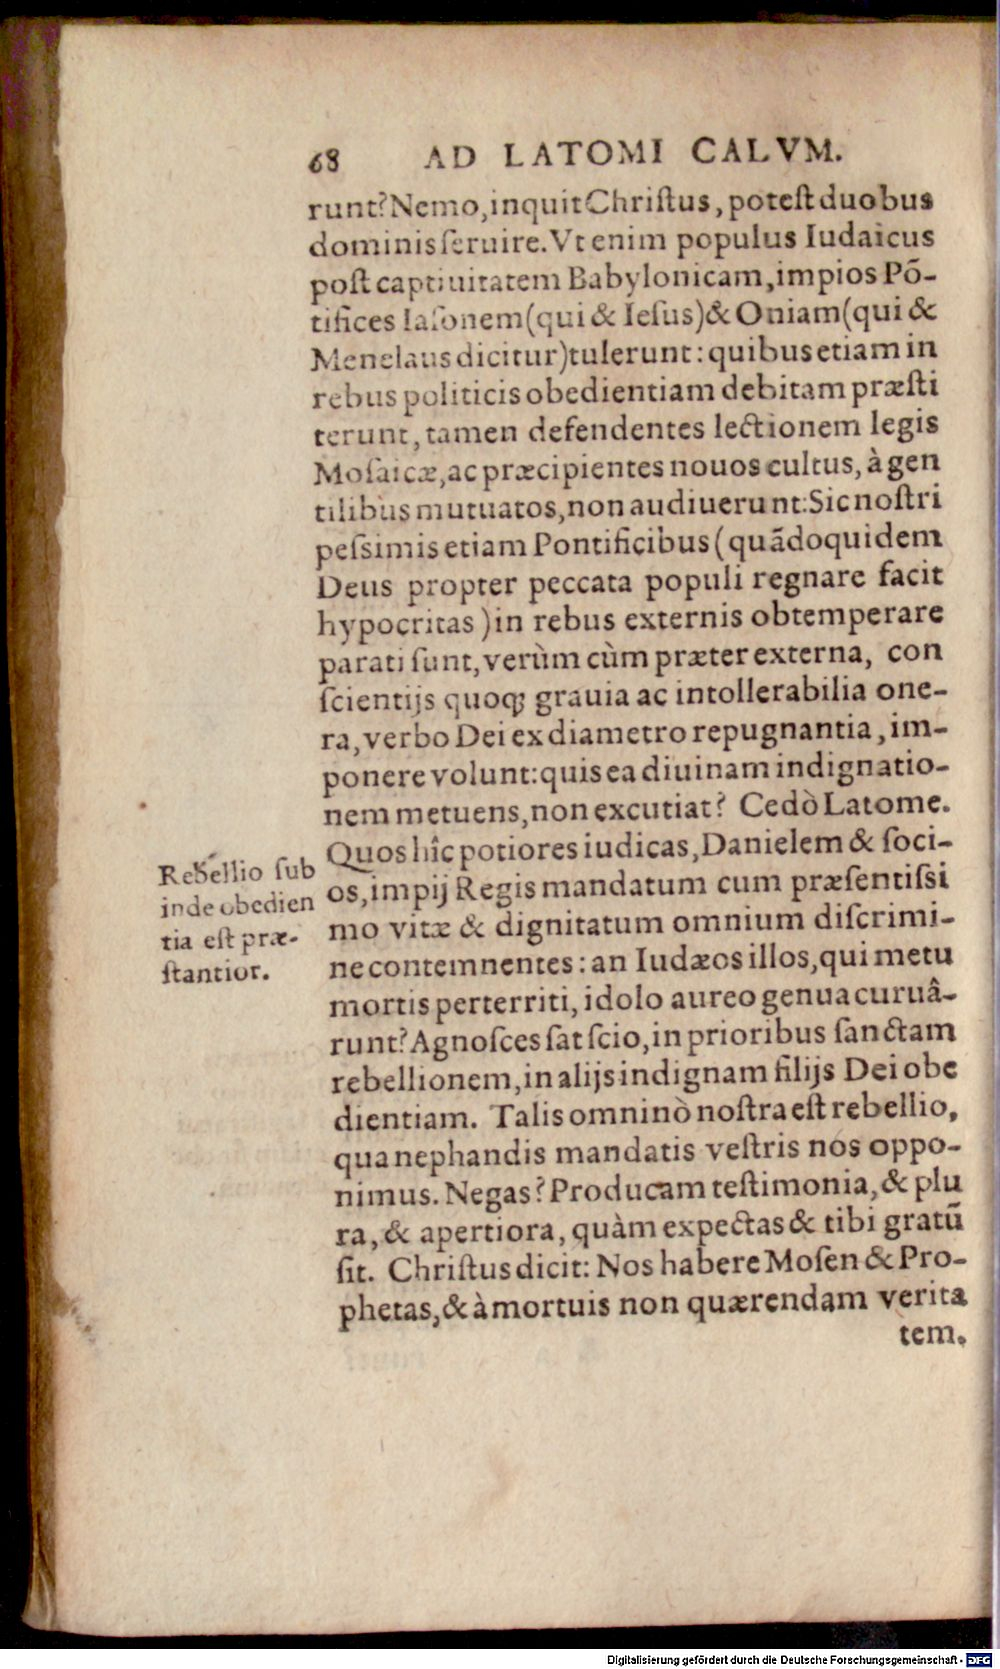 68 AD LATOMI CALVM.
runt? Nemo, inquit Christus, potest duobus
dominis seruire. Vt enim populus Iudaicus
post captiuitatem Babylonicam, impios Põ-
tifices Iasonem (qui & Iesus) & Oniam (qui &
Menelaus dicitur) tulerunt: quibus etiam in
rebus politicis obedientiam debitam præsti
terunt, tamen defendentes lectionem legis
Mosaicæ, ac præcipientes nouos cultus, à gen
tilibus mutuatos, non audiuerunt: Sic nostri
pessimis etiam Pontificibus (quãdoquidem
Deus propter peccata populi regnare facit
hypocritas) in rebus externis obtemperare
parati sunt, verùm cùm præter externa, con
scientijs quoq; grauia ac intollerabilia one-
ra, verbo Dei ex diametro repugnantia, im-
ponere volunt: quis ea diuinam indignatio-
nem metuens, non excutiat? Cedò Latome.
Quos hîc potiores iudicas, Danielem & soci-
os, impij Regis mandatum cum præsentissi
mo vitæ & dignitatum omnium discrimi-
ne contemnentes: an Iudæos illos, qui metu
mortis perterriti, idolo aureo genua curuâ-
runt? Agnosces sat scio, in prioribus sanctam
rebellionem, in alijs indignam filijs Dei obe
dientiam. Talis omninò nostra est rebellio,
qua nephandis mandatis vestris nos oppo-
nimus. Negas? Producam testimonia, & plu
ra, & apertiora, quàm expectas & tibi gratũ
sit. Christus dicit: Nos habere Mosen & Pro-
phetas, & à mortuis non quærendam verita
tem.
Rebellio sub
inde obedien
tia est præ-
stantior.
Digitalisierung gefördert durch die Deutsche Forschungsgemeinschaft - DFG